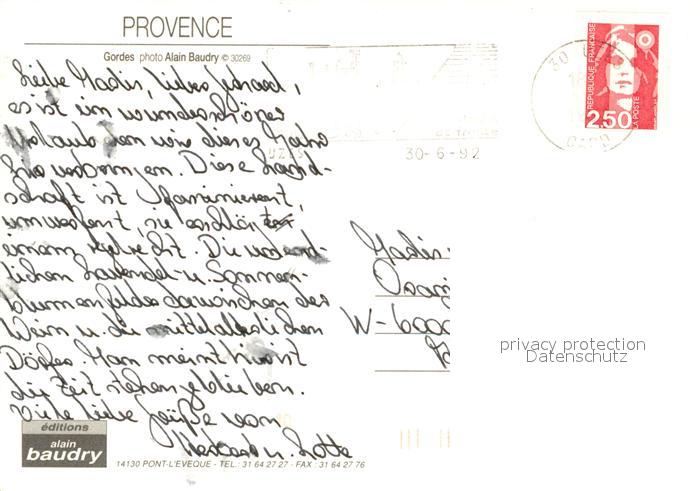 PROVENCE
Gordes photo Alain Baudry © 30269
Liebe Gadis, liebes
es ist ein wunderschöner
Urlaub den wir dieses Jahr
hier verbringen. Diese Land-
schaft ist faszinierend,
umwerfend, sie erschlägt
einen regelrecht. Die unend-
lichen Lavendel- u. Sonnen-
blumenfelder dazwischen der
Wein u. die mittelalterlichen
Dörfer. Man meint hier ist
die Zeit stehen geblieben.
Viele liebe Grüße von
Herbert u. Lotte
UZES
30-6-92
30
GARD
REPUBLIQUE FRANÇAISE
2,50
LA POSTE
W-6000
privacy protection
Datenschutz
éditions
alain
baudry
14130 PONT-L'EVEQUE - TEL.: 31 64 27 27 - FAX : 31 64 27 76